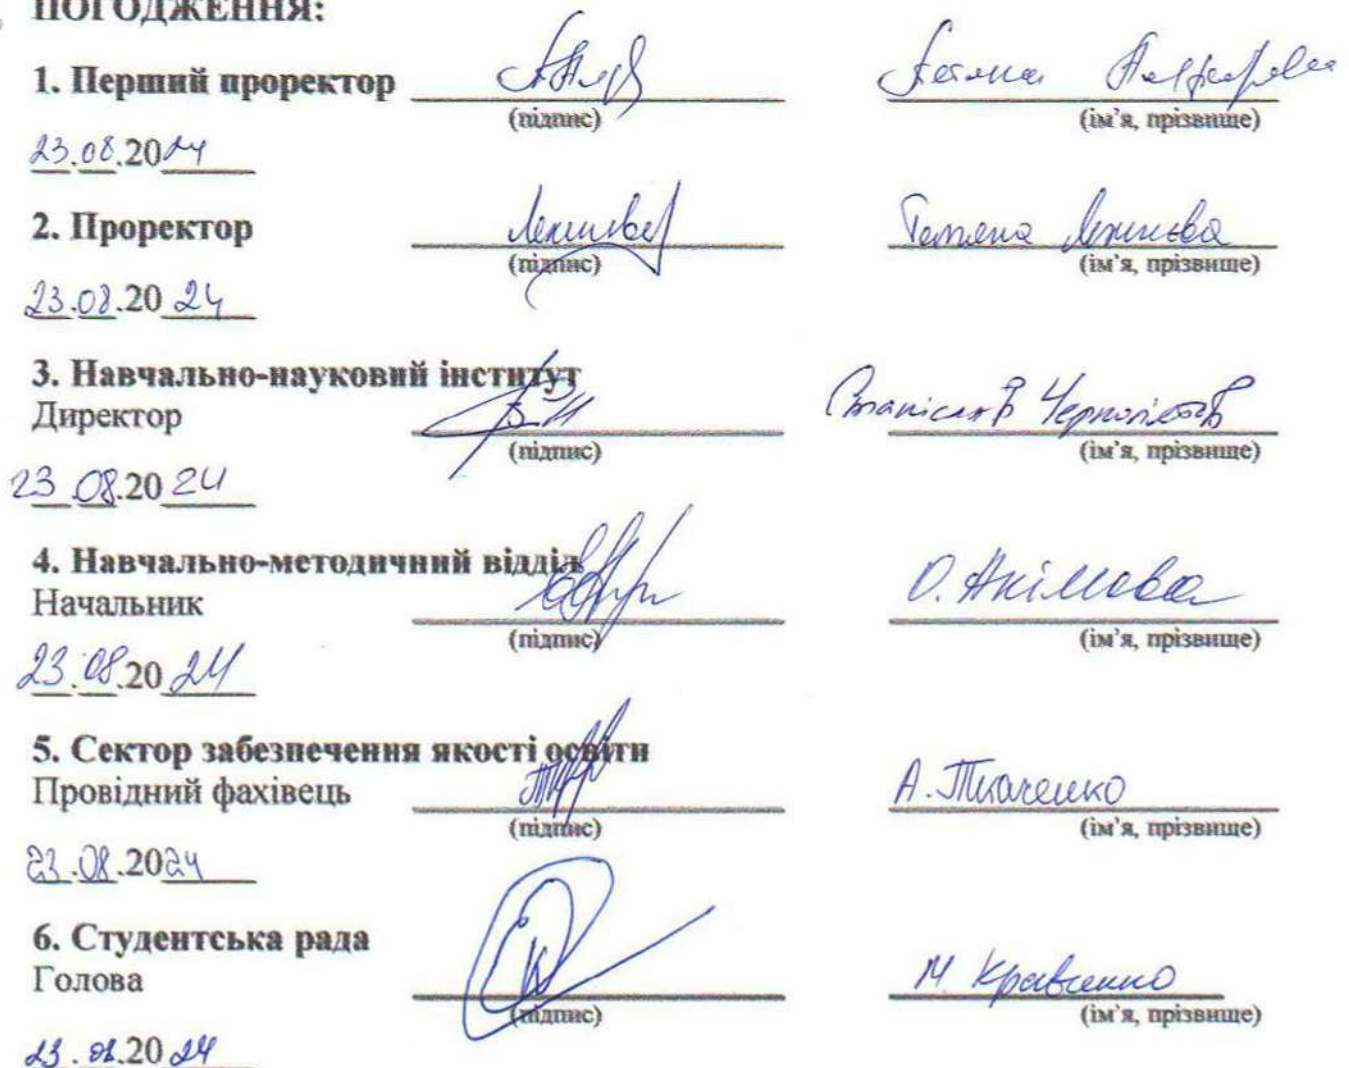 ПОГОДЖЕННЯ:
1. Перший проректор
(підпис) (ім’я, прізвище)
23.08.2024
2. Проректор Тетяна
(підпис) (ім’я, прізвище)
23.08.20 24
3. Навчально-науковий інститут
Директор Станіслав
(підпис) (ім’я, прізвище)
23.08.20 24
4. Навчально-методичний відділ
Начальник О. Акімова
(підпис) (ім’я, прізвище)
23.08.20 24
5. Сектор забезпечення якості освіти
Провідний фахівець А. Ткаченко
(підпис) (ім’я, прізвище)
23.08.2024
6. Студентська рада
Голова М. Кравченко
(підпис) (ім’я, прізвище)
23.08.20 24